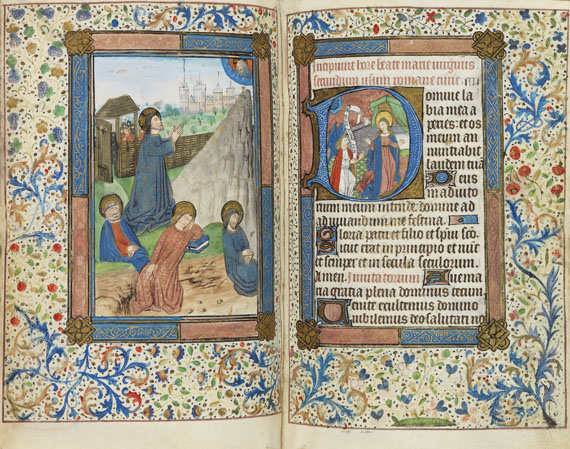 Incipiunt hore beate marie virginis
secundum usum romane curie
Domine la
bia mea a
peries: et os
meum an
nuntiabit
laudem tuā
Deus
in adiuto
rium meum intende. domine ad
adiuuandum me festina.
Gloria patri et filio et spiui sc̄o
Sicut erat in principio et nūc
et semper et in secula seculorum.
Amen. Inuitatorium Aue ma
ria gratia plena dominus tecum
Uenite exultemus domino
iubilemus deo salutari nr̄o